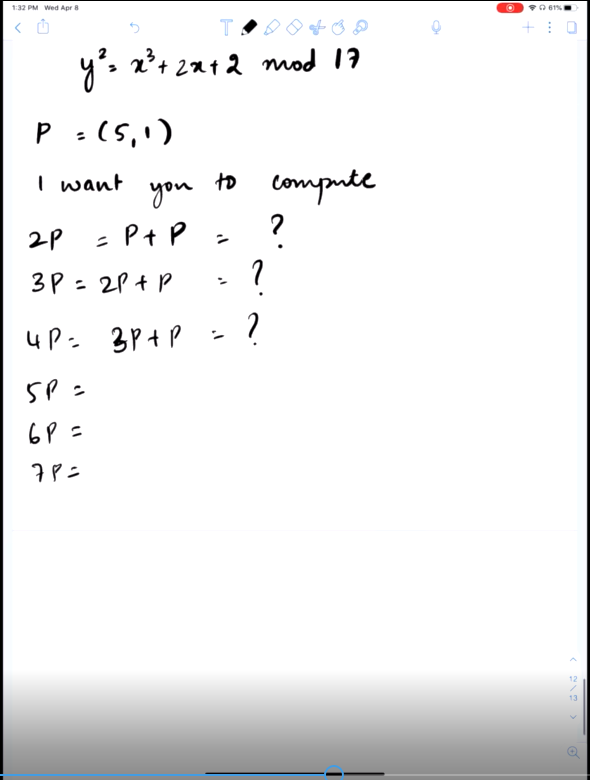 1:32 PM Wed Apr 8
61%
y² = x³ + 2x + 2 mod 17
P = (5, 1)
I want you to compute
2P = P + P = ?
3P = 2P + P = ?
4P = 3P + P = ?
5P =
6P =
7P =
12
/
13